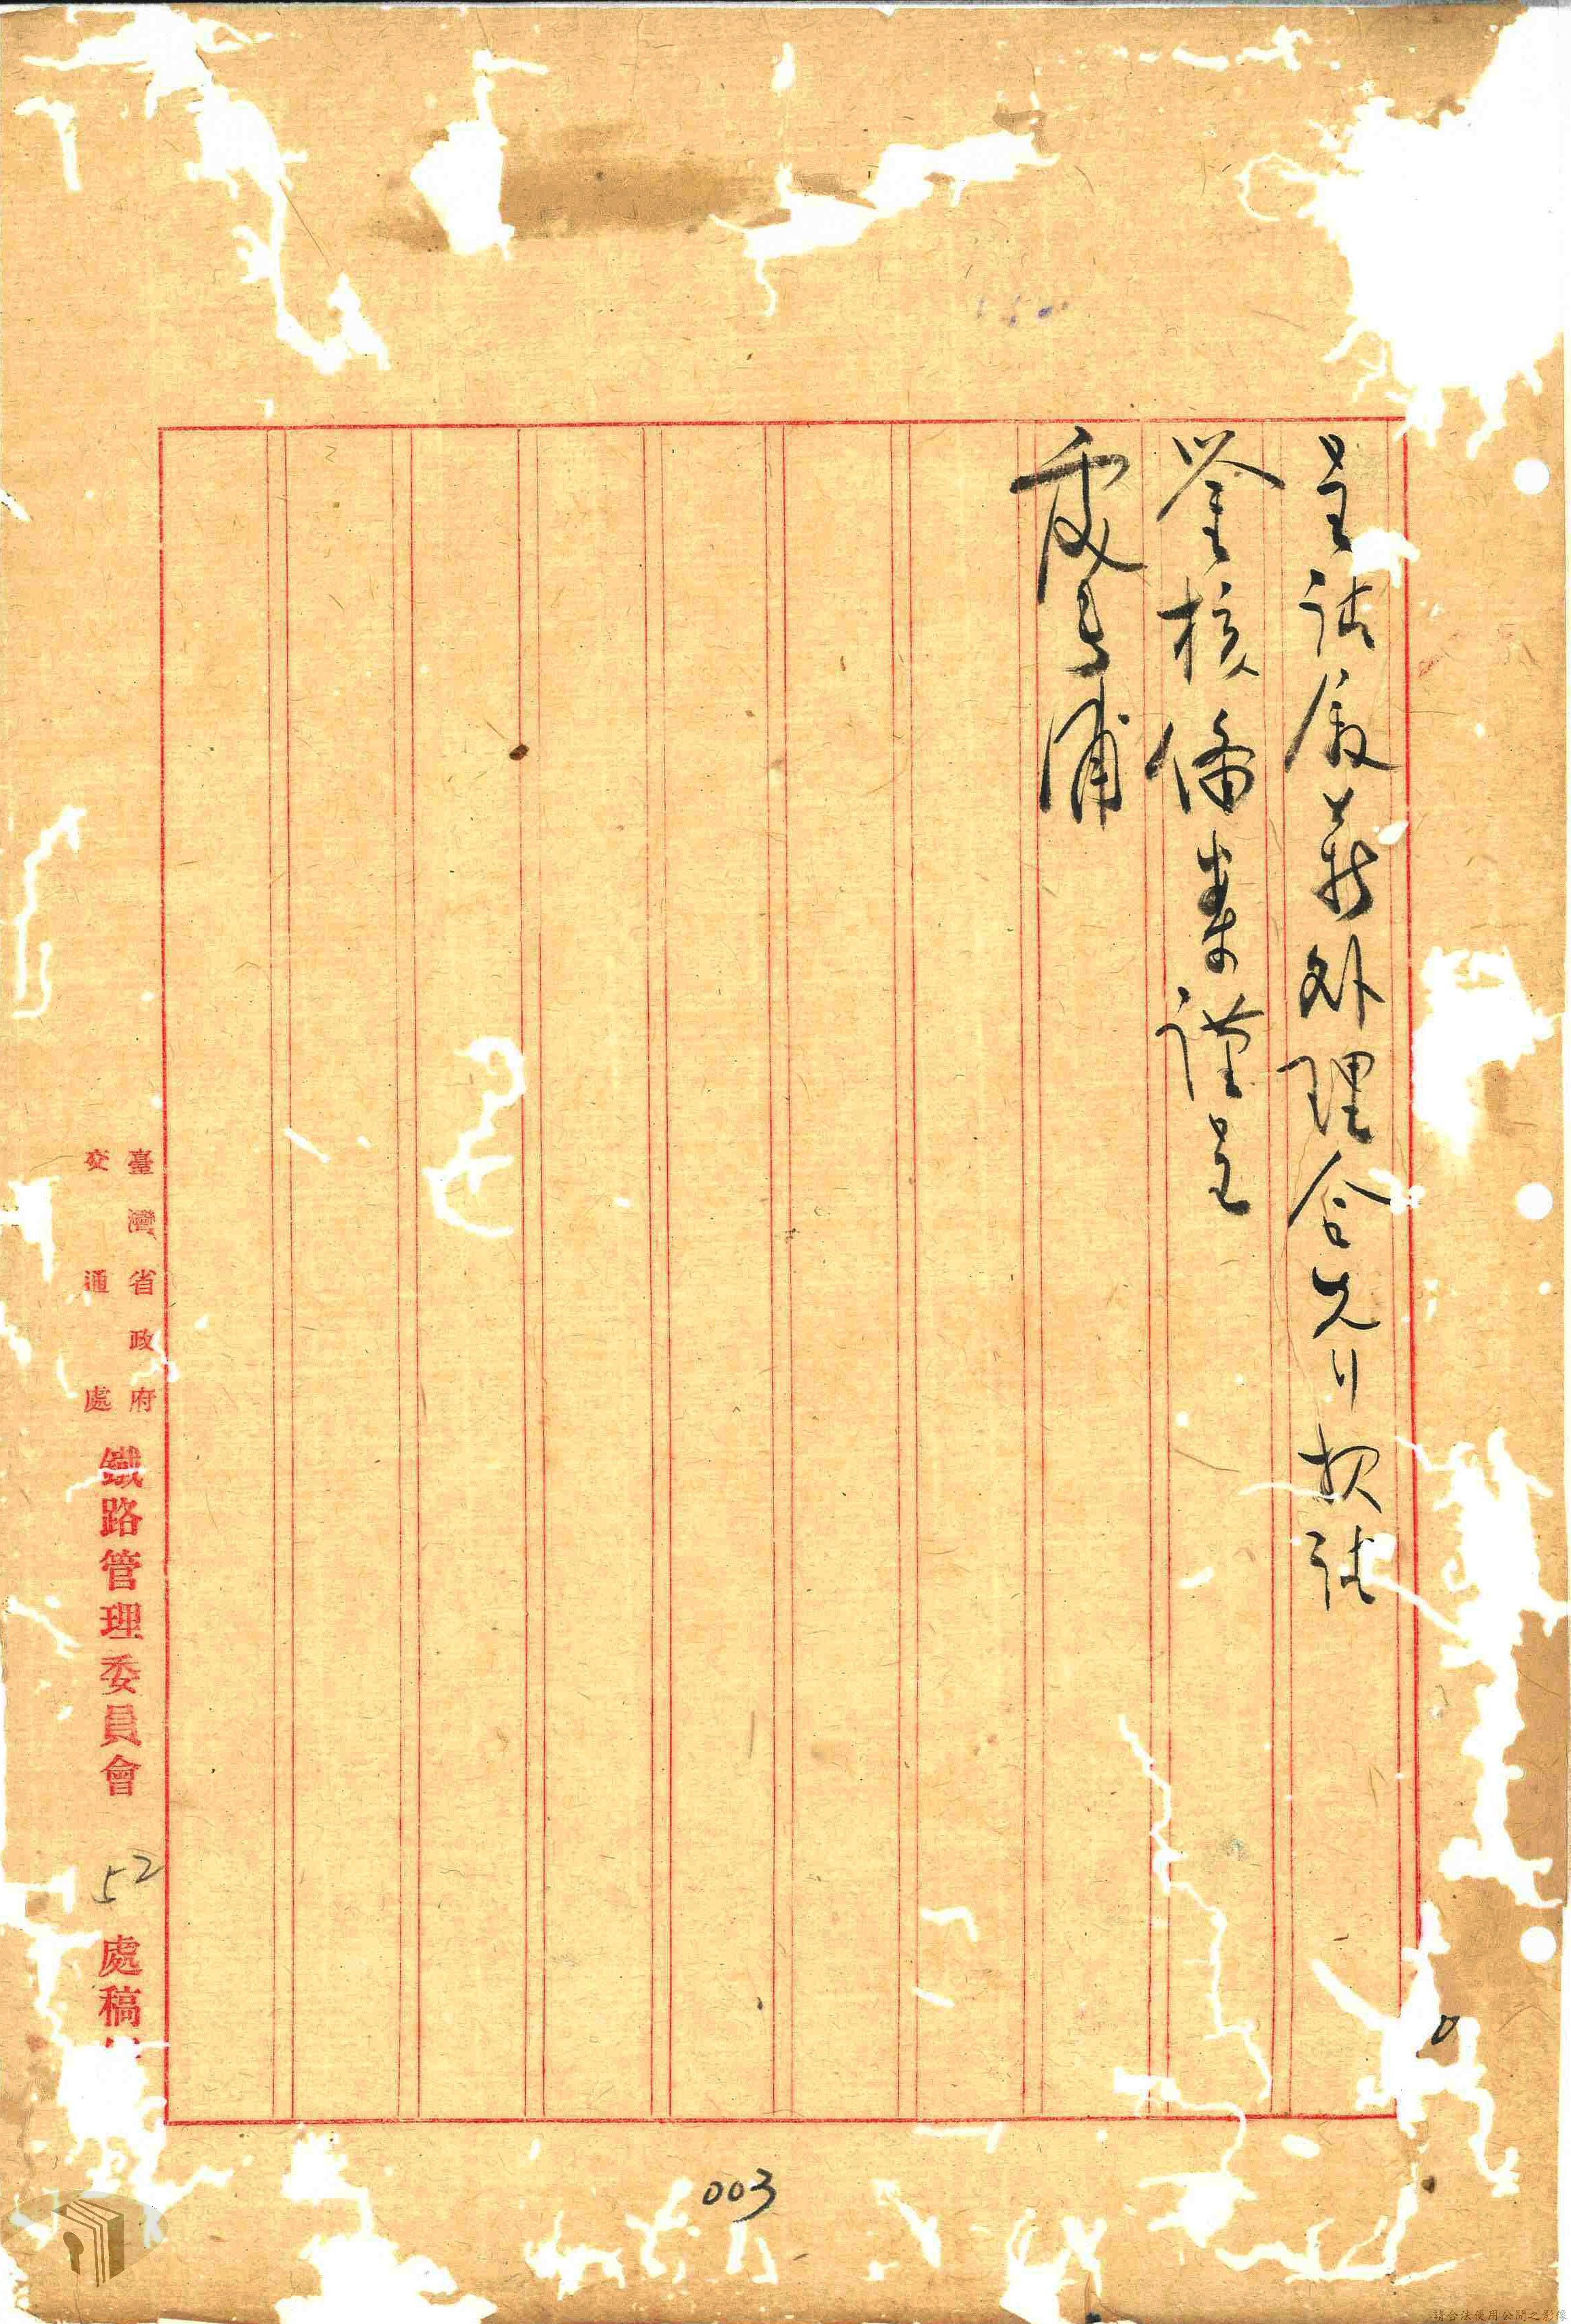 呈請 核薪外理合先行換請
鑒核備案謹呈
處長浦
臺灣省政府
交通處
鐵路管理委員會
52
處稿
003
請合法使用公開之影像